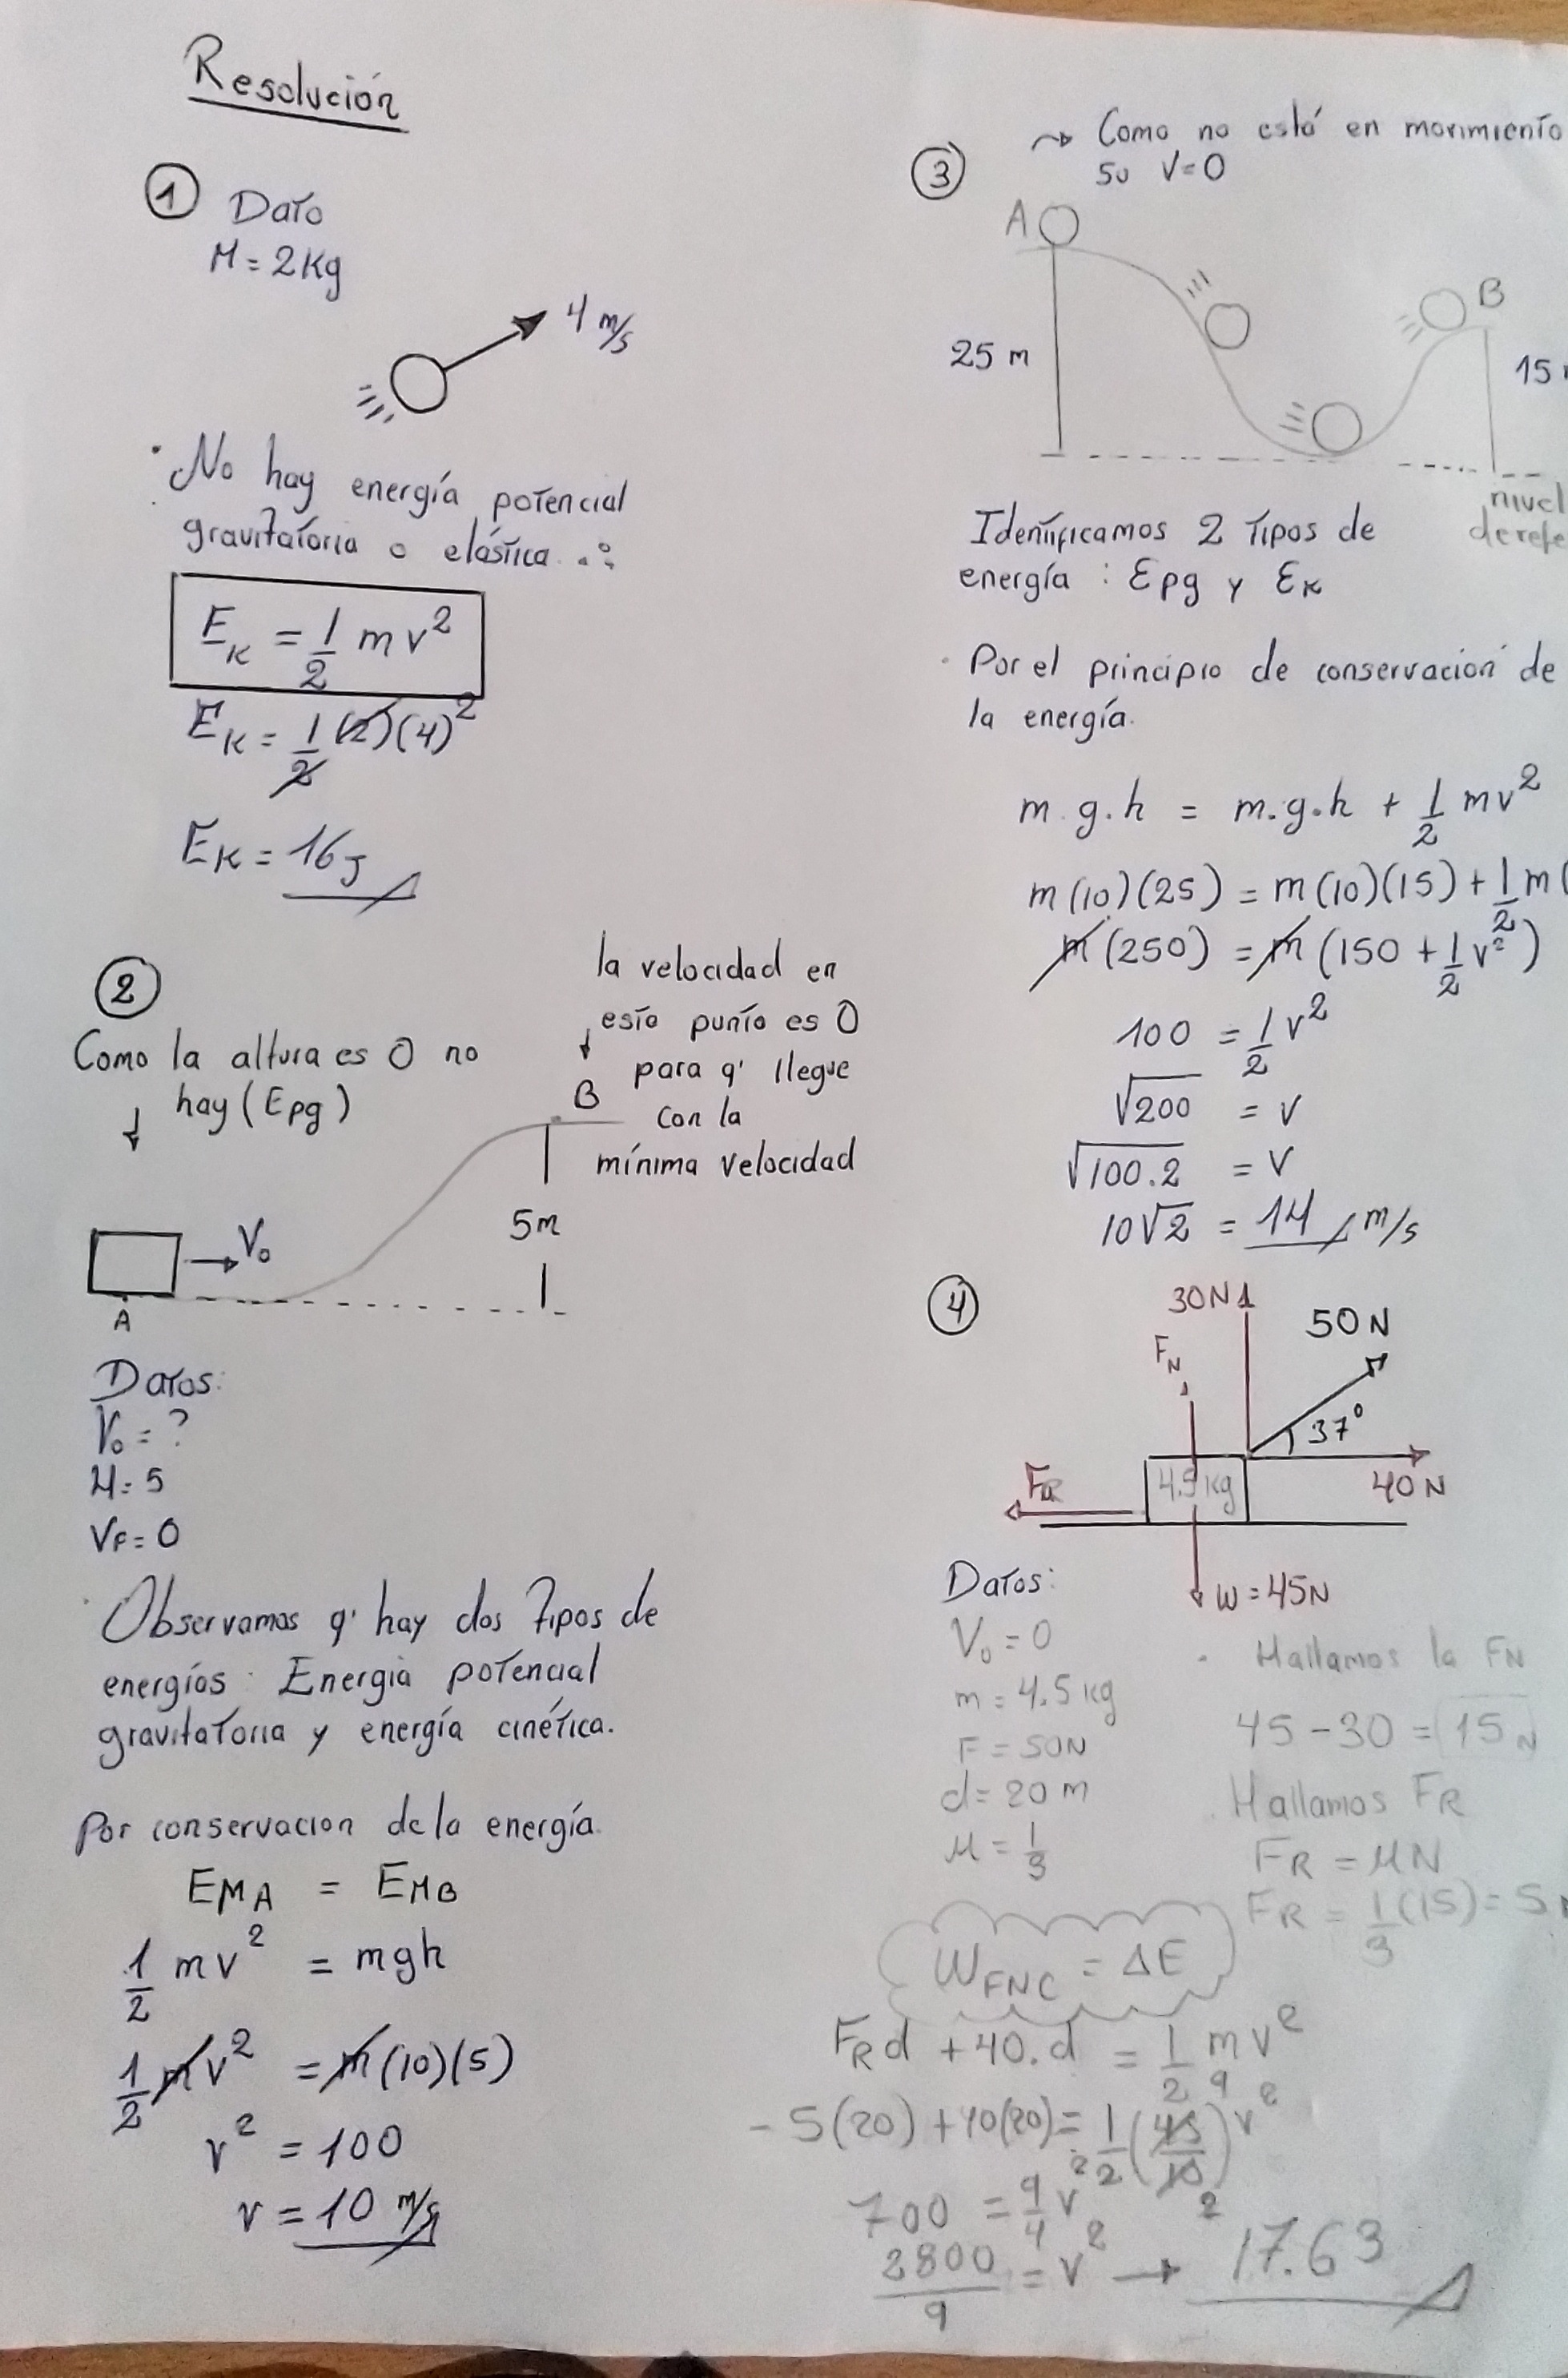 Resolución
① Dato
M = 2Kg
4 m/s
· No hay energía potencial
gravitatoria o elástica ∴
E_K = 1/2 m v²
E_K = 1/2 (2)(4)²
E_K = 16 J
②
Como la altura es 0 no
hay (Epg)
la velocidad en
este punto es 0
para q' llegue
con la
mínima velocidad
B
5m
V₀
A
Datos:
V₀ = ?
H = 5
V_F = 0
· Observamos q' hay dos tipos de
energías: Energía potencial
gravitatoria y energía cinética.
Por conservacion de la energía.
E_MA = E_MB
1/2 m v² = mgh
1/2 m v² = m (10)(5)
v² = 100
v = 10 m/s
③
Como no está en movimiento
su V=0
A
B
25 m
15
nivel
de refe
Identificamos 2 tipos de
energía : Epg y E_K
· Por el principio de conservación de
la energía.
m.g.h = m.g.h + 1/2 mv²
m(10)(25) = m(10)(15) + 1/2 m(
m(250) = m(150 + 1/2 v²)
100 = 1/2 v²
√200 = v
√100.2 = v
10√2 = 14 m/s
④
30N
50N
F_N
37°
F_R
4.5 kg
40N
W = 45N
Datos:
V₀ = 0
m = 4.5 kg
F = 50N
d = 20 m
μ = 1/3
· Hallamos la F_N
45 - 30 = 15 N
· Hallamos F_R
F_R = μN
F_R = 1/3 (15) = 5
W_FNC = ΔE
F_R d + 40.d = 1/2 m v²
-5(20) + 40(20) = 1/2 (45/10) v²
9
2
700 = 9/4 v²
2800/9 = v² → 17.63